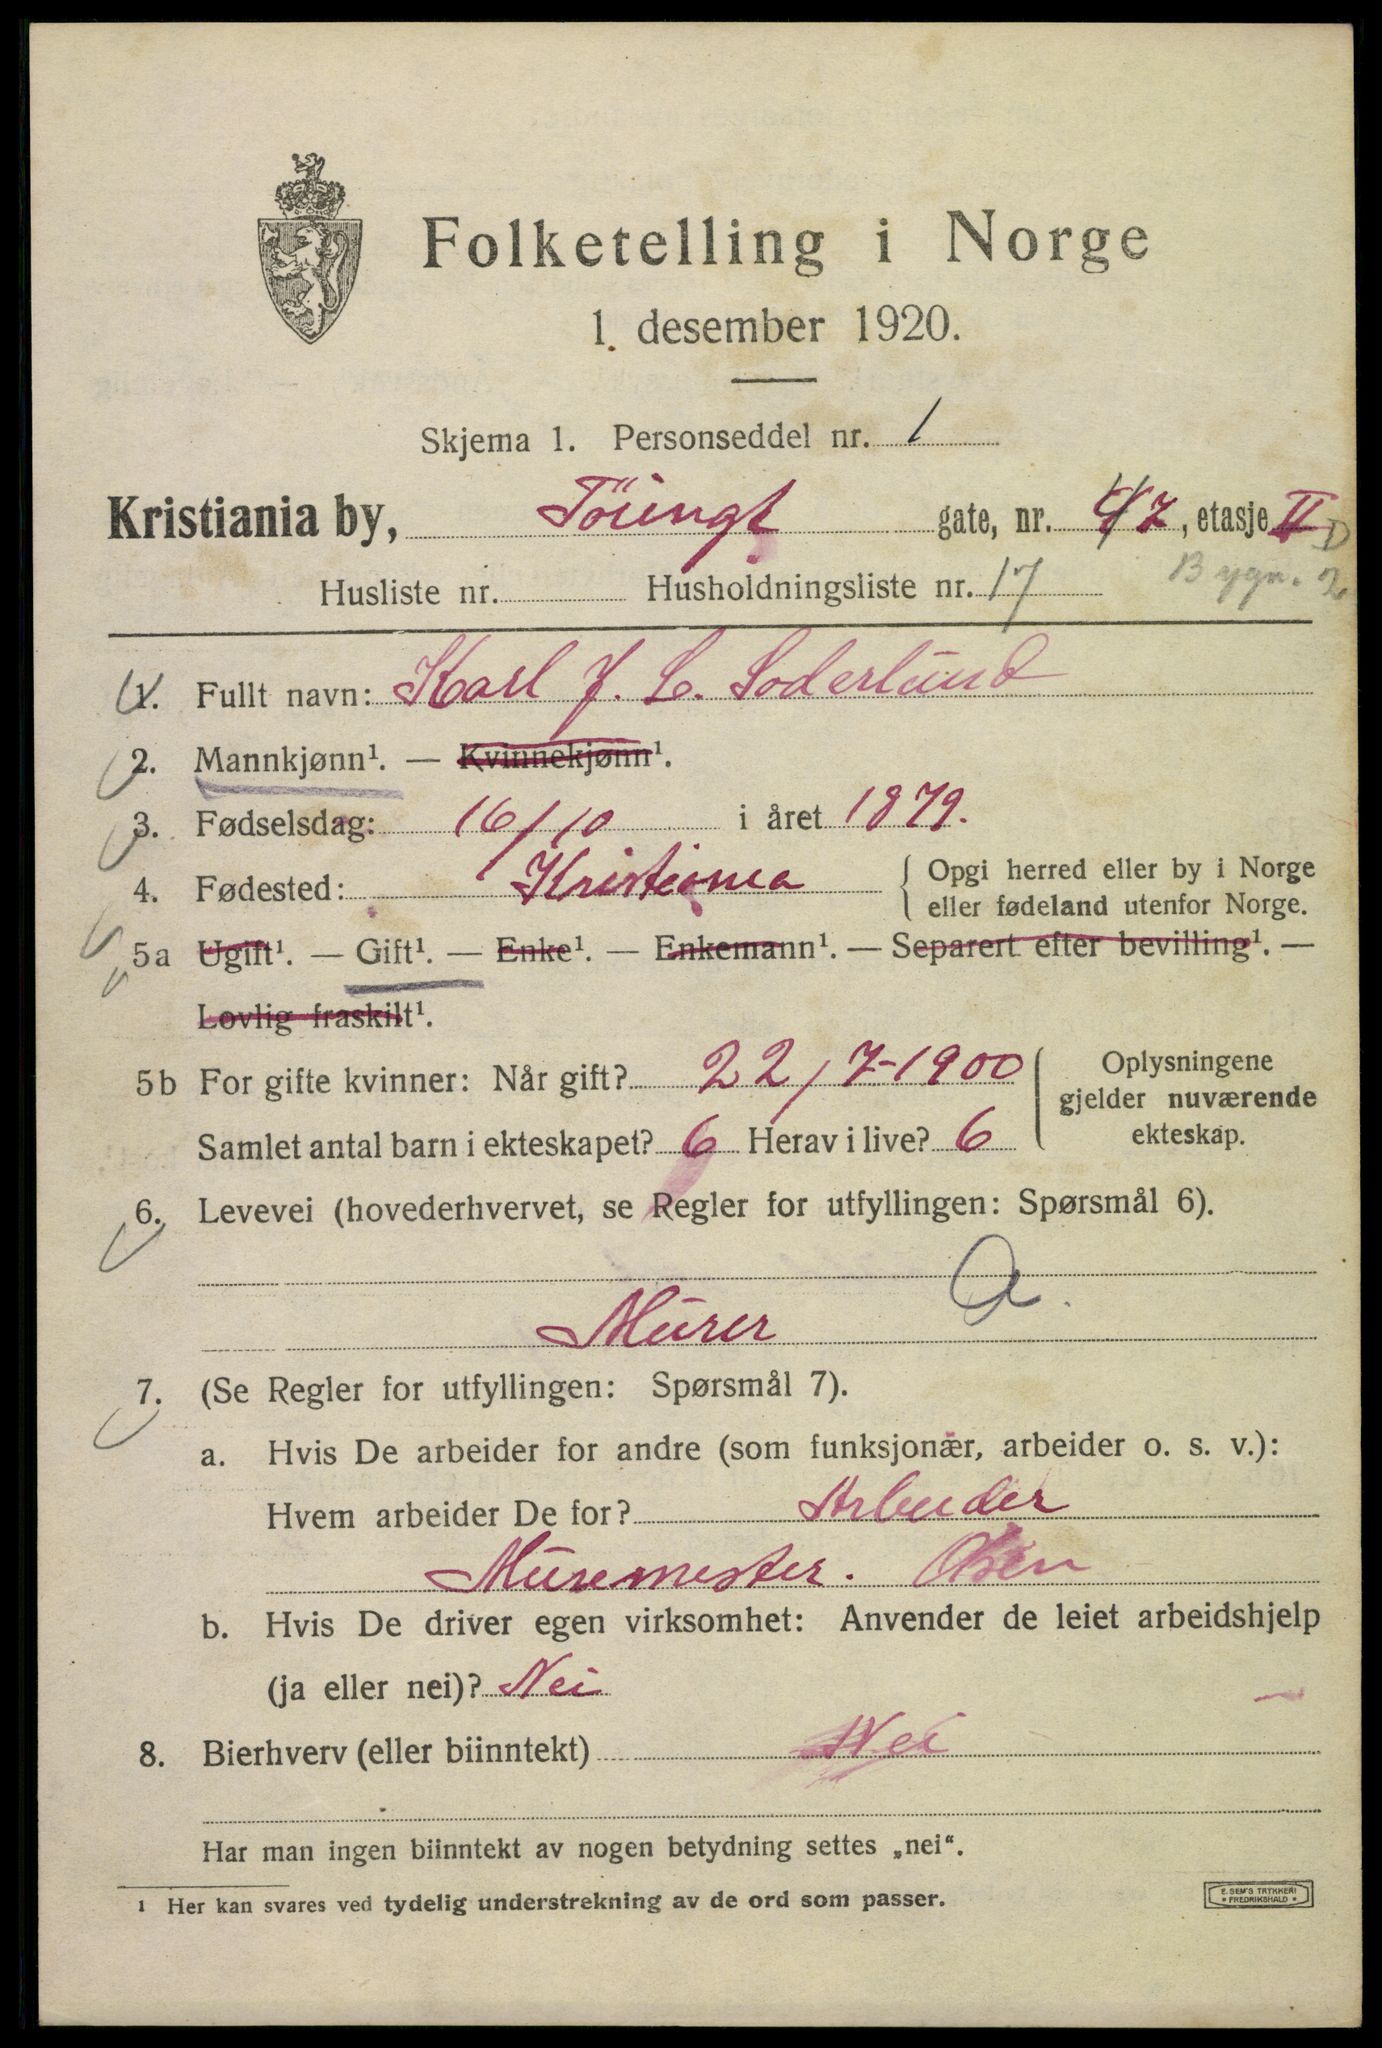 Folketelling i Norge
1. desember 1920.
Skjema 1. Personseddel nr. 1
Kristiania by, Töiengt gate, nr. 47, etasje II D
Husliste nr. Husholdningsliste nr. 17 Bygn. 2
1. Fullt navn: Karl J. L. Soderlund
2. Mannkjønn¹. — Kvinnekjønn¹.
3. Fødselsdag: 16/10 i året 1879.
4. Fødested: Kristiania { Opgi herred eller by i Norge
eller fødeland utenfor Norge.
5a Ugift¹. — Gift¹. — Enke¹. — Enkemann¹. — Separert efter bevilling¹. —
Lovlig fraskilt¹.
5b For gifte kvinner: Når gift? 22/7-1900
Samlet antal barn i ekteskapet? 6 Herav i live? 6
Oplysningene
gjelder nuværende
ekteskap.
6. Levevei (hovederhvervet, se Regler for utfyllingen: Spørsmål 6).
a.
Murer
7. (Se Regler for utfyllingen: Spørsmål 7).
a. Hvis De arbeider for andre (som funksjonær, arbeider o. s. v.):
Hvem arbeider De for? Arbeider
Muremester. Olsen
b. Hvis De driver egen virksomhet: Anvender de leiet arbeidshjelp
(ja eller nei)? Nei
8. Bierhverv (eller biinntekt) Nei
Har man ingen biinntekt av nogen betydning settes „nei“.
¹ Her kan svares ved tydelig understrekning av de ord som passer.
E. SEM'S TRYKKERI
* FREDRIKSHALD *